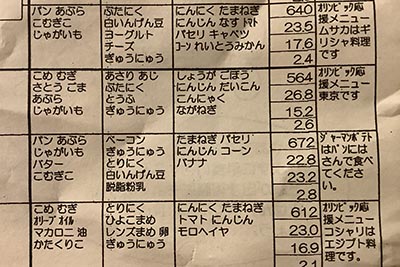 パン あぶら
こむぎこ
じゃがいも
ぶたにく
白いんげん豆
ヨーグルト
チーズ
ぎゅうにゅう
にんにく たまねぎ
にんじん なす トマト
パセリ キャベツ
コーン れいとうみかん
640
23.5
17.6
2.4
オリンピック応
援メニュー
ムサカはギ
リシャ料理
です
こめ むぎ
さとう ごま
あぶら
じゃがいも
あさり あじ
ぶたにく
とうふ
ぎゅうにゅう
しょうが ごぼう
にんじん だいこん
こんにゃく
ながねぎ
564
26.8
15.2
2.6
オリンピック応
援メニュー
東京です
パン あぶら
じゃがいも
バター
こむぎこ
ベーコン
ぎゅうにゅう
とりにく
白いんげん豆
脱脂粉乳
たまねぎ パセリ
にんじん コーン
バナナ
672
22.8
23.2
2.8
ジャーマンポテト
はパンには
さんで食べ
てください。
こめ むぎ
オリーブ オイル
マカロニ 油
かたくりこ
とりにく
ひよこまめ
レンズまめ 卵
ぎゅうにゅう
にんにく たまねぎ
トマト にんじん
モロヘイヤ
612
23.0
16.9
2.1
オリンピック応
援メニュー
コシャリは
エジプト料理
です。